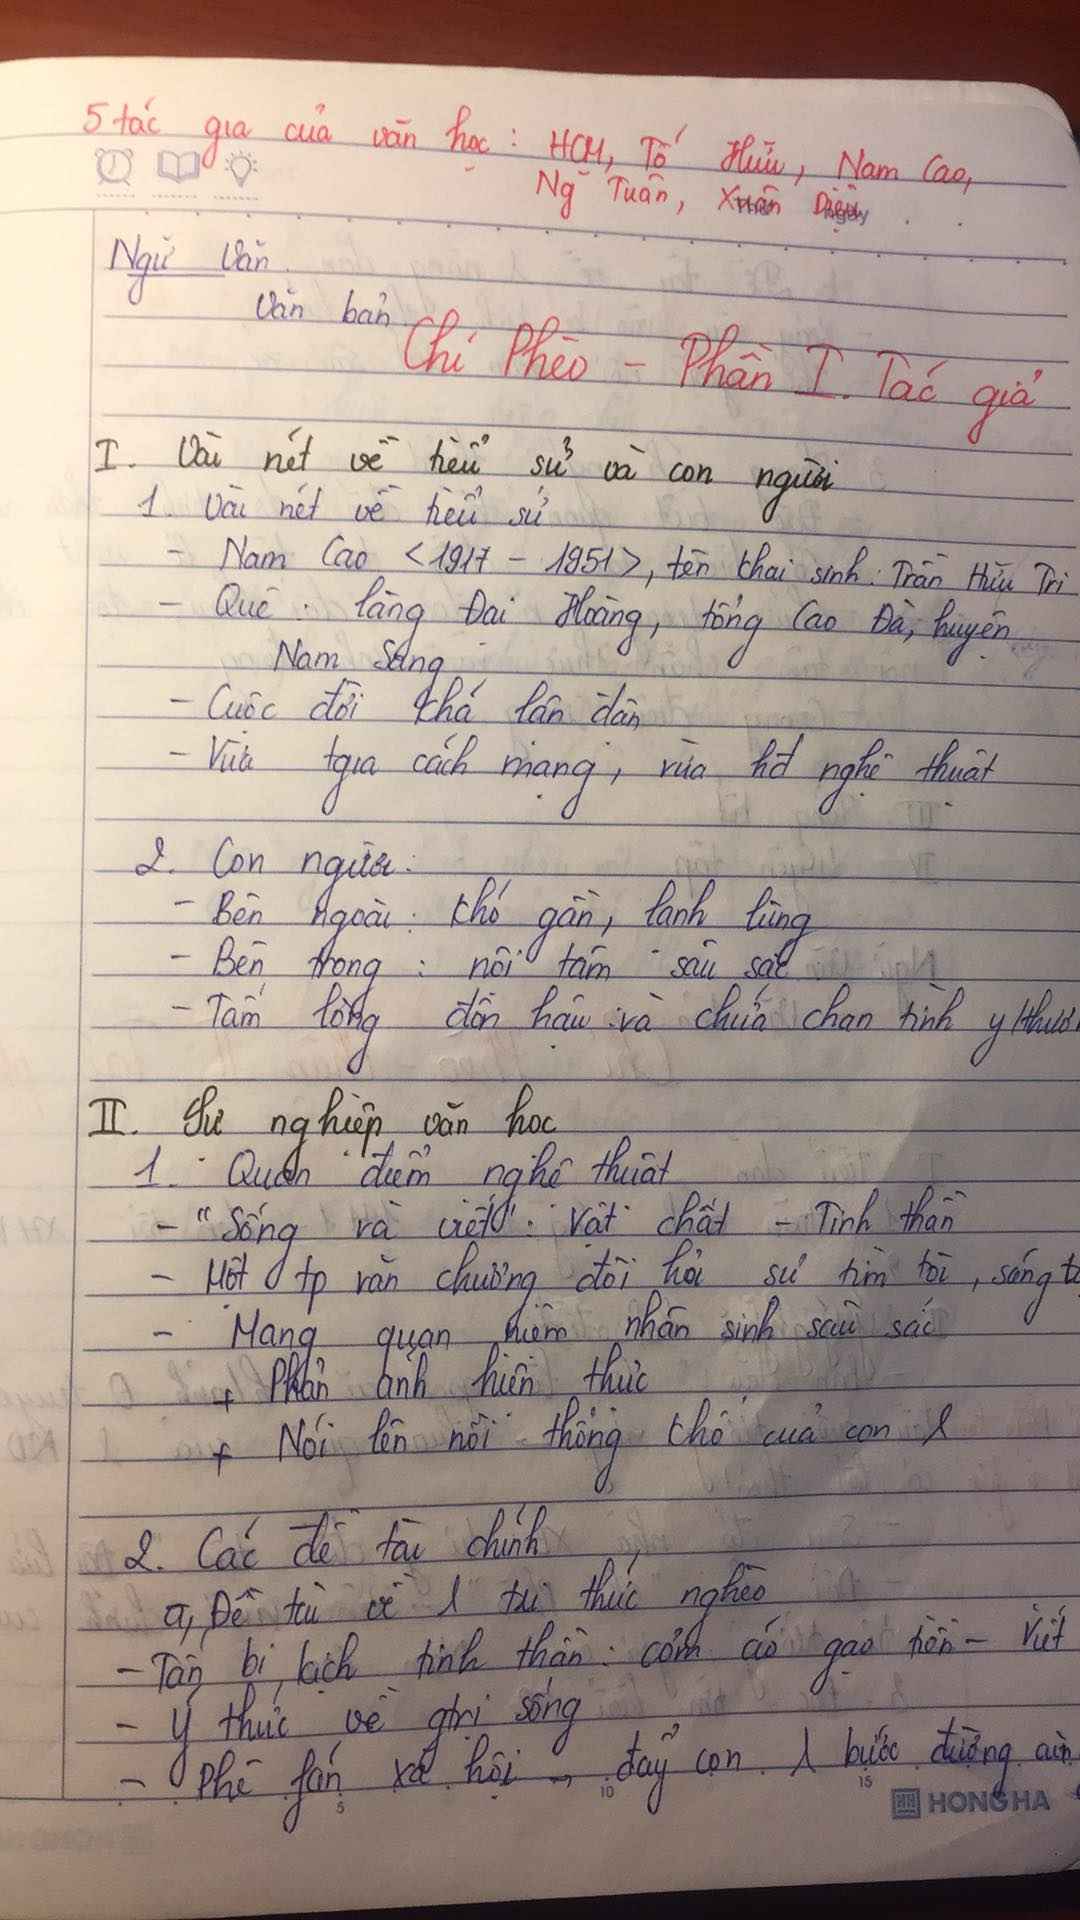 5 tác gia của văn học: HCM, Tố Hữu, Nam Cao,
Ng Tuân, Xuân Diệu
Ngữ Văn
Văn bản
Chí Phèo - Phần I. Tác giả
I. Vài nét về tiểu sử và con người
1. Vài nét về tiểu sử
- Nam Cao <1917 - 1951>, tên khai sinh: Trần Hữu Tri
- Quê: làng Đại Hoàng, tổng Cao Đà, huyện
Nam Sang
- Cuộc đời khá lận đận
- Vừa tgia cách mạng, vừa hđ nghệ thuật
2. Con người:
- Bên ngoài: khó gần, lạnh lùng
- Bên trong: nội tâm sâu sắc
- Tấm lòng đôn hậu và chứa chan tình y/thươn
II. Sự nghiệp văn học
1. Quan điểm nghệ thuật
- "Sống và viết": Vật chất - Tinh thần
- Một tp văn chương đòi hỏi sự tìm tòi, sáng t
- Mang quan niệm nhân sinh sâu sắc
+ Phản ánh hiện thực
+ Nói lên nỗi thống khổ của con
2. Các đề tài chính
a, Đề tài về trí thức nghèo
- Tấn bi kịch tinh thần: cơm áo gạo tiền - Viết
- Ý thức về gtrị sống
- Phê fán xã hội → đẩy con bước đường cùn
5 10 15
HONG HA